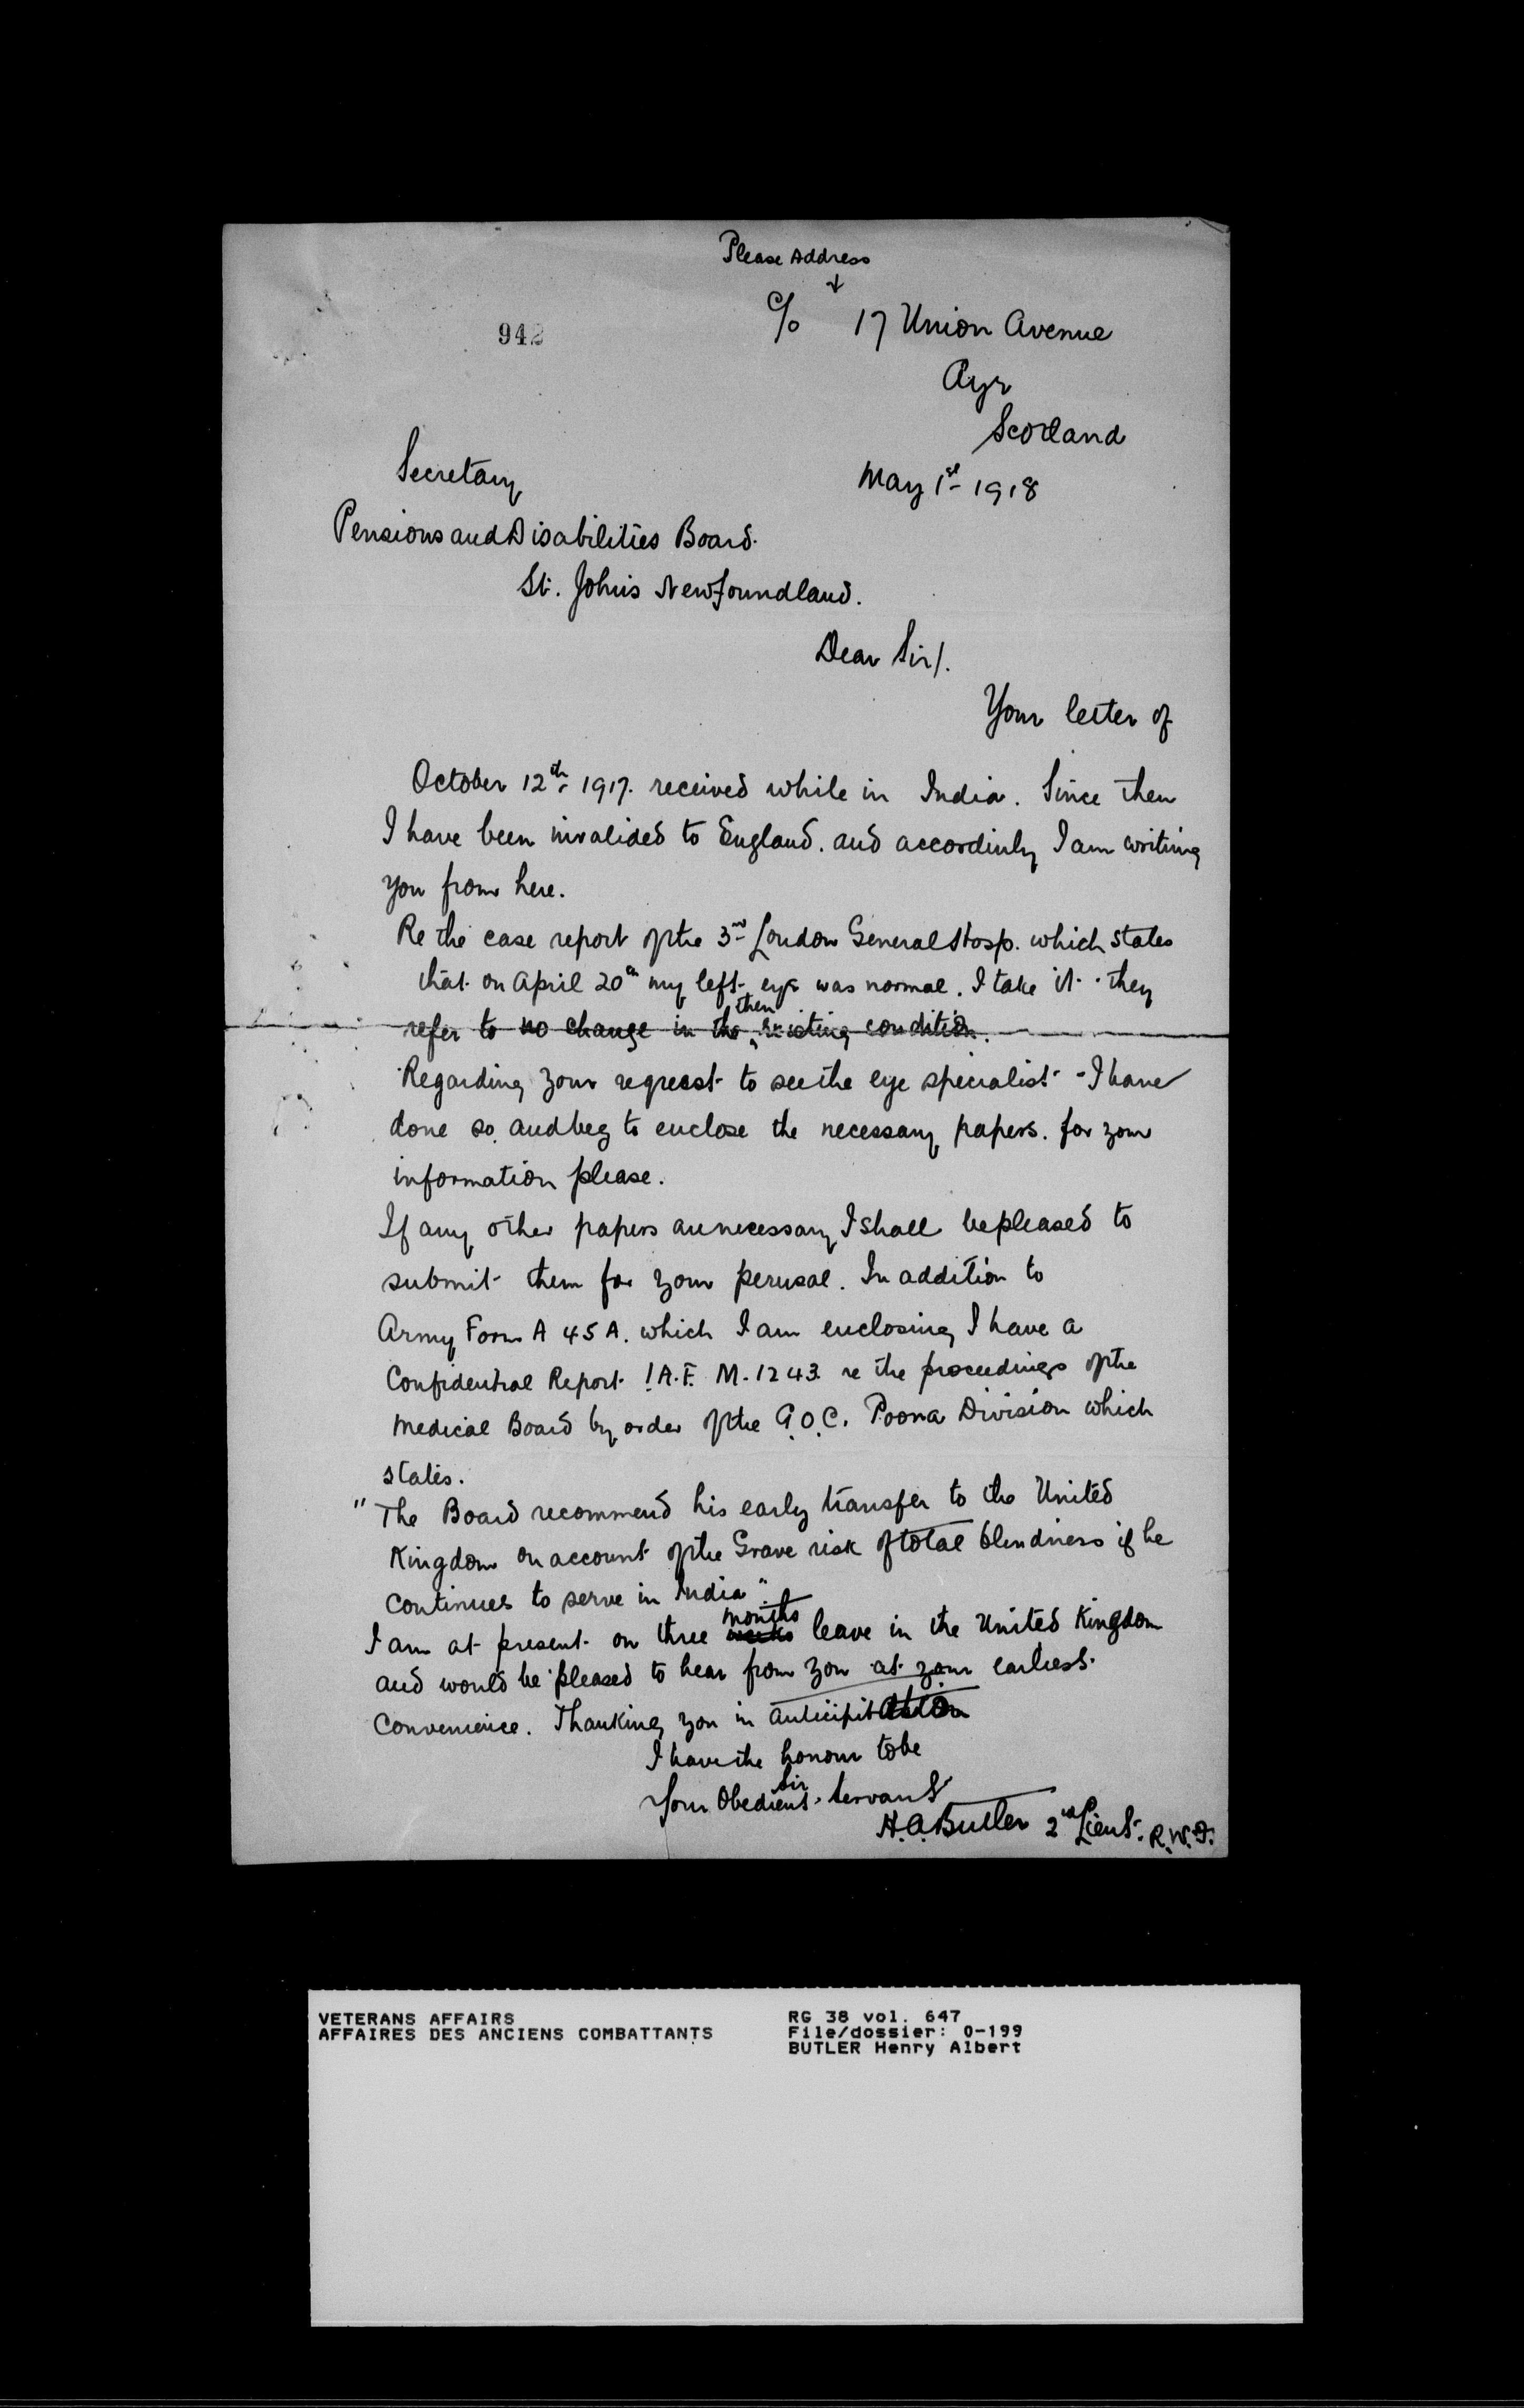 Please Address
↓
c/o 17 Union Avenue
942
Ayr
Scotland
Secretary
May 1st 1918
Pensions and Disabilities Board.
St. John's Newfoundland.
Dear Sir/.
Your letter of
October 12th, 1917. received while in India. Since then
I have been invalided to England. and accordinly I am writing
you from here.
Re the case report of the 3rd London General Hosp. which states
that on April 20th my left eye was normal. I take it they
refer to no change in the then existing condition.
Regarding your request to see the eye specialist - I have
done so. and beg to enclose the necessary papers. for your
information please.
If any other papers are necessary I shall be pleased to
submit them for your perusal. In addition to
Army Form A 45 A. which I am enclosing I have a
Confidential Report. I.A.F. M. 1243 re the proceedings of the
Medical Board by order of the G.O.C. Poona Division which
states.
"The Board recommend his early transfer to the United
Kingdom on account of the Grave risk of total blindness if he
continues to serve in India".
I am at present on three weeks months leave in the United Kingdom
and would be pleased to hear from you at your earliest
convenience. Thanking you in anticipitation
I have the honour to be
Sir
Your Obedient Servant
H.A. Butler 2nd Lieut. R.W.F.
VETERANS AFFAIRS
AFFAIRES DES ANCIENS COMBATTANTS
RG 38 vol. 647
File/dossier: 0-199
BUTLER Henry Albert